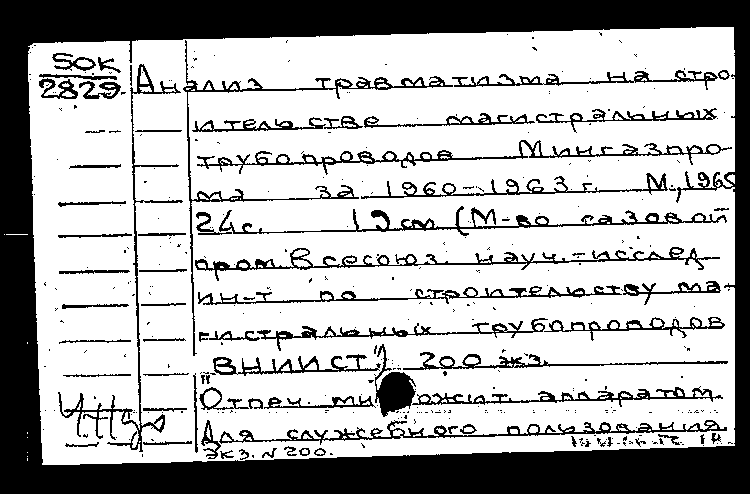 50К
2829
Анализ травматизма на стро-
ительстве магистральных
трубопроводов Мингазпро-
ма за 1960-1963 г. М., 1965
24 с. 19 см (М-во газовой
пром. Всесоюз. науч.-исслед.
ин-т по строительству ма-
гистральных трубопроводов
"ВНИИСТ") 200 экз.
Отпеч. множит. аппаратом.
Для служебного пользования
Экз. N 200.